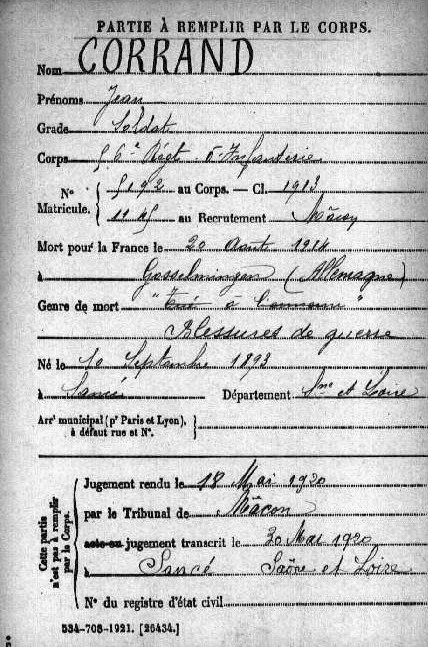 PARTIE À REMPLIR PAR LE CORPS.
Nom CORRAND
Prénoms Jean
Grade Soldat
Corps 56e Régt d'Infanterie
N° Matricule. { 5192 au Corps. — Cl. 1913
au Recrutement Mâcon
Mort pour la France le 20 Août 1914
à Gosselmingen (Allemagne)
Genre de mort "Tué à l'ennemi"
Blessures de guerre
Né le 10 Septembre 1893
à Sancé Département Sne et Loire
Arrt municipal (pr Paris et Lyon), à défaut rue et N°. }
Cette partie n'est pas à remplir par le Corps. {
Jugement rendu le 18 Mai 1920
par le Tribunal de Mâcon
acte ou jugement transcrit le 30 Mai 1920
à Sancé Saône et Loire
N° du registre d'état civil
534-708-1921. [26434.]